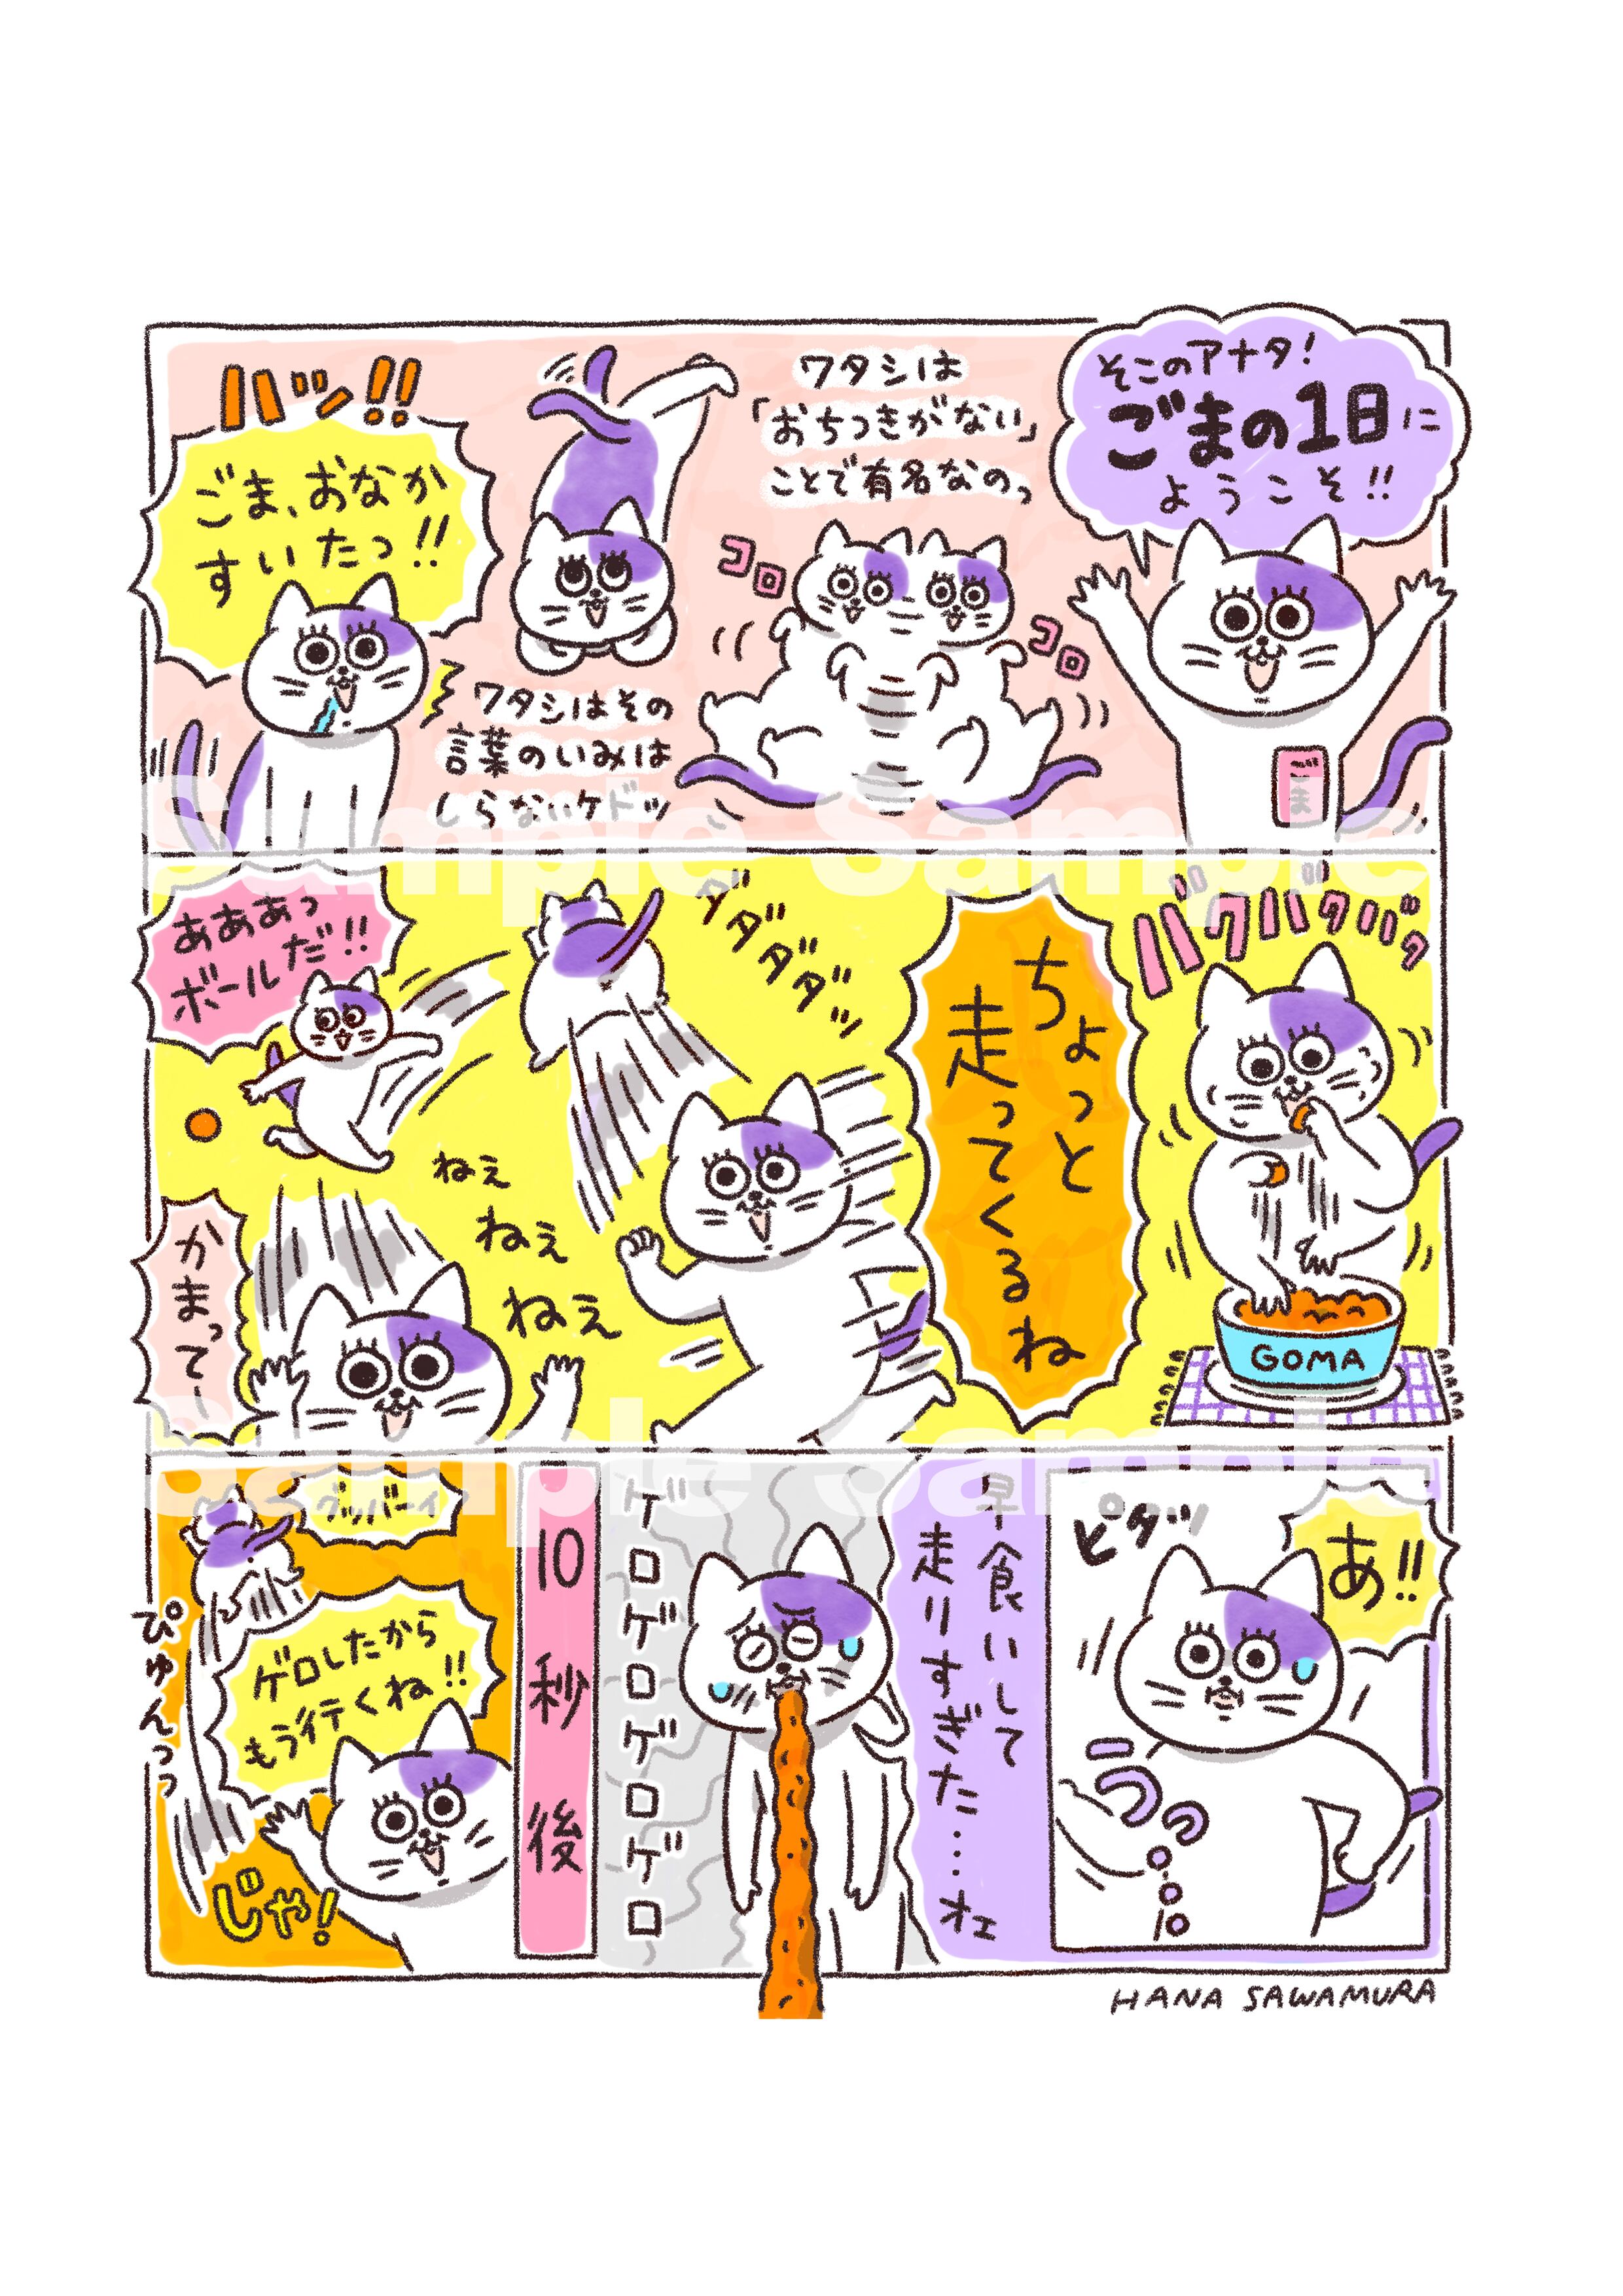 そこのアナタ!
ごまの1日に
ようこそ!!
ごま
ワタシは
「おちつきがない」
ことで有名なのっ
コロ
コロ
ワタシはその
言葉のいみは
しらないケドッ
ハッ!!
ごま、おなか
すいたっ!!
バクバクバク
GOMA
ちょっと
走ってくるね
ダダダダッ
ねぇ
ねぇ
ねぇ
あああっ
ボールだ!!
かまってー
あ!!
ピタッ
うっ
早食いして
走りすぎた……ネェ
ゲロゲロゲロゲロ
10秒後
ゲロしたから
もう行くね!!
じゃ!
グッバーイ
ぴゅんっっ
HANA SAWAMURA
Sample Sample
Sample Sample